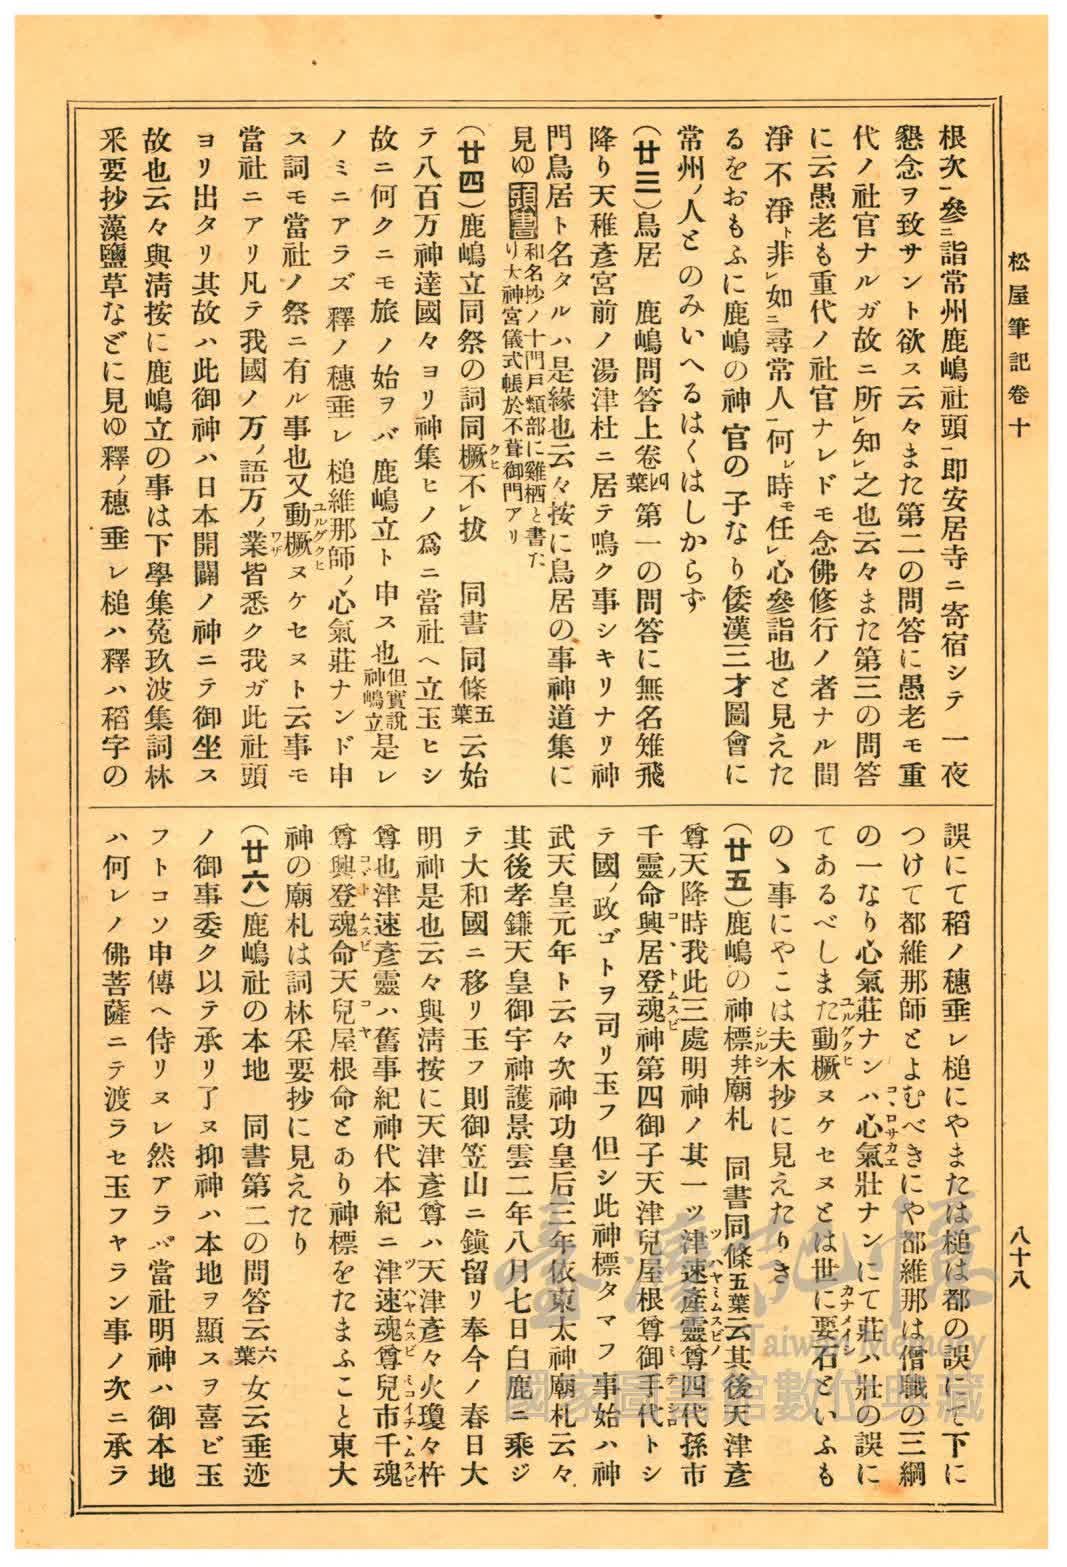 松屋筆記卷十
八十八
根次ニ參詣常州鹿嶋社頭ニ卽安居寺ニ寄宿シテ一夜
懇念ヲ致サント欲ス云々また第二の問答に愚老モ重
代ノ社官ナルガ故ニ所レ知レ之也云々また第三の問答
に云愚老も重代ノ社官ナレドモ念佛修行ノ者ナル間
淨不淨ト非レ如ニ尋常人一何レ時モ任レ心參詣也と見えた
るをおもふに鹿嶋の神官の子なり倭漢三才圖會に
常州ノ人とのみいへるはくはしからず
(廿三)鳥居　鹿嶋問答上卷四葉第一の問答に無名雉飛
降り天稚彥宮前ノ湯津杜ニ居テ鳴ク事シキリナリ神
門鳥居ト名タルハ是緣也云々按に鳥居の事神道集に
見ゆ頭書和名抄ノ十門戸類部に雞栖と書た
り大神宮儀式帳於不葺御門アリ
(廿四)鹿嶋立同祭の詞同橛クヒ不レ拔　同書同條五葉云始
テ八百万神達國々ヨリ神集ヒノ爲ニ當社ヘ立玉ヒシ
故ニ何クニモ旅ノ始ヲバ鹿嶋立ト申ス也但實說神嶋立是レ
ノミニアラズ釋ノ穗垂レ槌維那師ノ心氣莊ナンド申
ス詞モ當社ノ祭ニ有ル事也又動橛ユルグクヒヌケセヌト云事モ
當社ニアリ凡テ我國ノ万ノ語万ノ業ワザ皆悉ク我ガ此社頭
ヨリ出タリ其故ハ此御神ハ日本開闢ノ神ニテ御坐ス
故也云々與淸按に鹿嶋立の事は下學集菟玖波集詞林
釆要抄藻鹽草などに見ゆ釋ノ穗垂レ槌ハ釋ハ稻字の
誤にて稻ノ穗垂レ槌にやまたは槌は都の誤にて下に
つけて都維那師とよむべきにや都維那は僧職の三綱
の一なり心氣莊ナンハ心氣壯コヽロサカエナンにて莊ハ壯の誤に
てあるべしまた動橛ユルグクヒヌケセヌとは世に要石カナメイシといふも
のゝ事にやこは夫木抄に見えたりき
(廿五)鹿嶋の神標シルシ并廟札　同書同條五葉云其後天津彥
尊天降時我此三處明神ノ其一ツ津速產靈尊ツハヤミムスビノ四代孫市
千靈命興居登魂神第四御子天津兒屋根尊御手代トシ
テ國ノ政ゴトヲ司リ玉フ但シ此神標タマフ事始ハ神
武天皇元年ト云々次神功皇后三年依東太神廟札云々
其後孝鎌天皇御宇神護景雲二年八月七日白鹿ニ乘ジ
テ大和國ニ移リ玉フ則御笠山ニ鎭留リ奉今ノ春日大
明神是也云々與淸按に天津彥尊ハ天津彥々火瓊々杵
尊也津速彥靈ハ舊事紀神代本紀ニ津速魂尊ツハヤムスビ兒市千魂ミコイチヽムスビ
尊興登魂コヾトムスビ命天兒屋コヤ根命とあり神標をたまふこと東大
神の廟札は詞林采要抄に見えたり
(廿六)鹿嶋社の本地　同書第二の問答云六葉女云垂迹
ノ御事委ク以テ承リ了ヌ抑神ハ本地ヲ顯スヲ喜ビ玉
フトコソ申傳ヘ侍リヌレ然アラバ當社明神ハ御本地
ハ何レノ佛菩薩ニテ渡ラセ玉フヤラン事ノ次ニ承ラ
臺灣記憶
Taiwan Memory
國家圖書館數位典藏